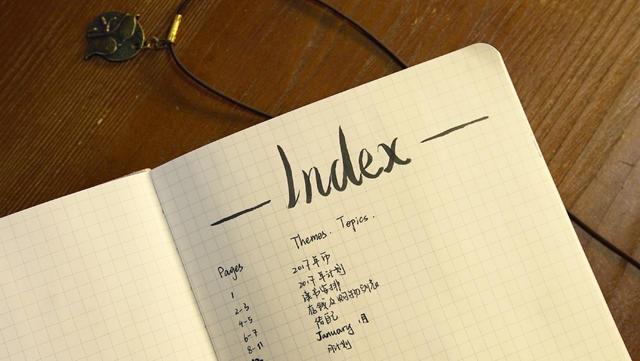 Index
Themes. Topics.
Pages
1 2017年
2-3 2017年计划
4-5 读书安排
6-7
8-11 January 1月
月计划